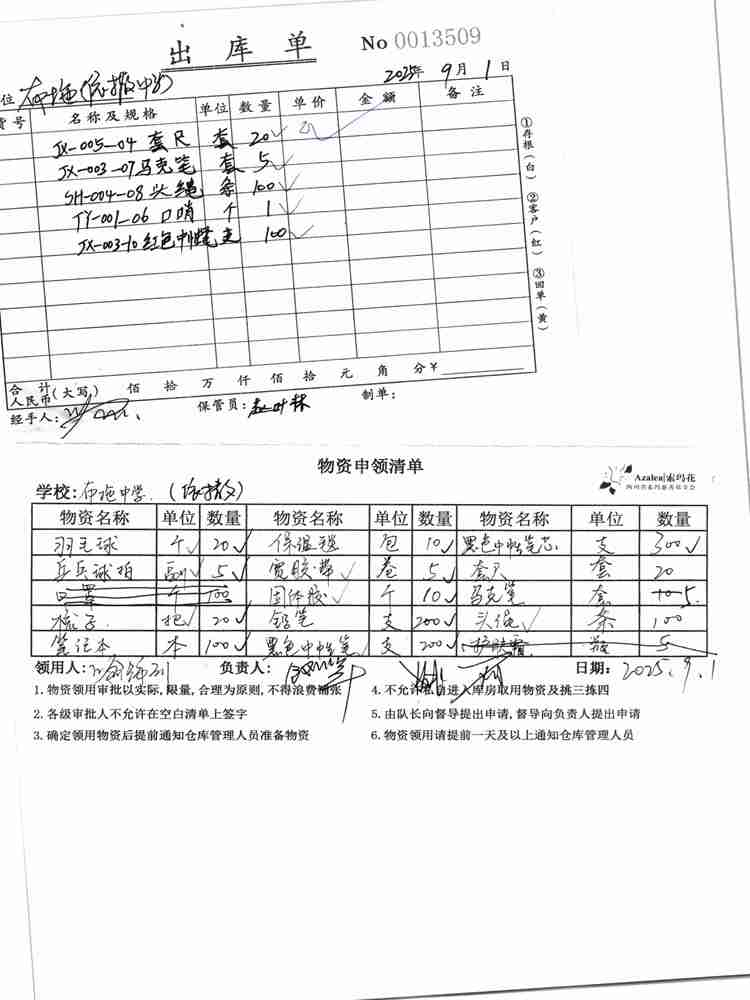 出库单 No 0013509
位 2025年 9月 1日
货号 名称及规格 单位 数量 单价 金额 备注
JX-005-04 套尺 套 20
JX-003-07 马克笔 套 5
SH-004-08 头绳 条 100
TY-001-06 口哨 个 1
JX-003-10 红色中性笔 支 100
①存根(白) ②客户(红) ③回单(黄)
合计人民币(大写) 佰 拾 万 仟 佰 拾 元 角 分 ¥
经手人: 保管员: 制单:
物资申领清单
Azalea|索玛花
学校: 布拖中学
物资名称 单位 数量 物资名称 单位 数量 物资名称 单位 数量
羽毛球 个 20 保温毯 包 10 黑色中性笔芯 支 300
乒乓球拍 副 5 宽胶带 卷 5 套尺 套 20
口罩 个 100 固体胶 个 10 马克笔 套 5
梳子 把 20 铅笔 支 200 头绳 条 100
笔记本 本 100 黑色中性笔 支 200 护肤霜 瓶 5
领用人: 负责人: 日期: 2025.9.1
1.物资领用审批以实际,限量,合理为原则,不得浪费铺张 4.不允许私自进入库房取用物资及挑三拣四
2.各级审批人不允许在空白清单上签字 5.由队长向督导提出申请,督导向负责人提出申请
3.确定领用物资后提前通知仓库管理人员准备物资 6.物资领用请提前一天及以上通知仓库管理人员